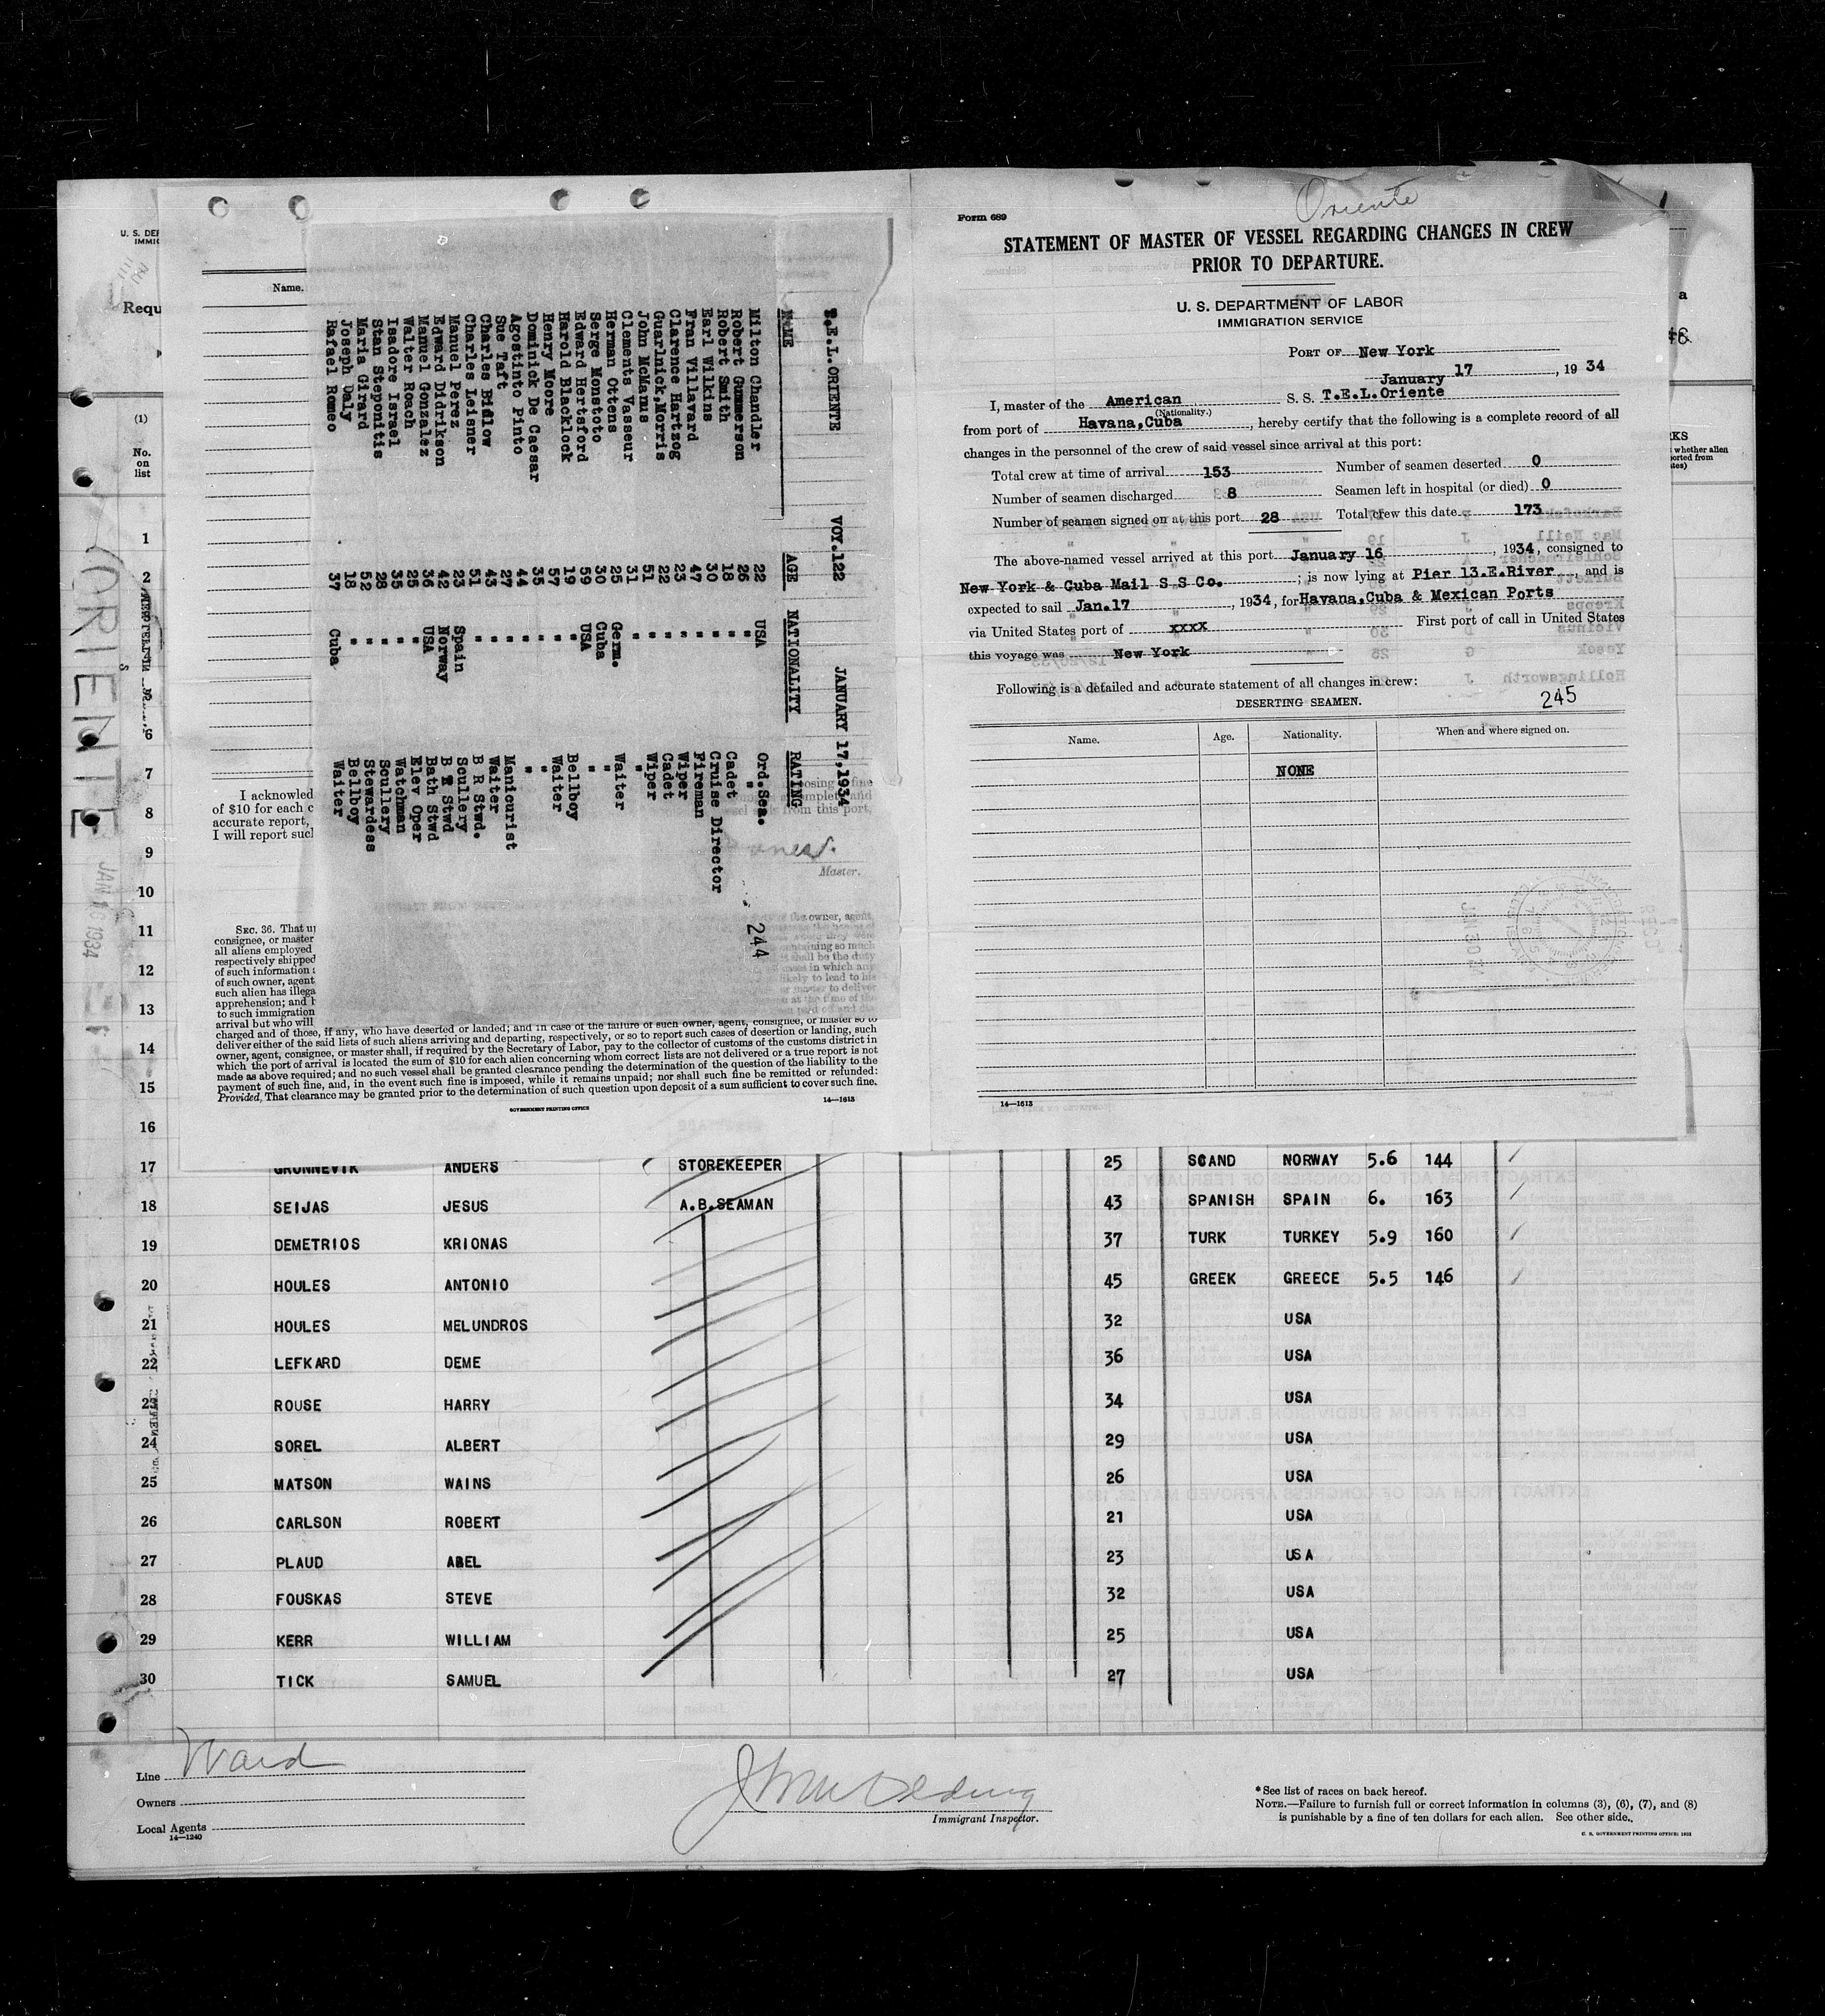 U. S. DEP
IMMIG
Requ
(1)
No.
on
list
ORIENTE
JAN 16 1934
Name.
T.E.L.ORIENTE VOY.122 JANUARY 17,1934
NAME AGE NATIONALITY RATING
Milton Chandler 22 USA Ord.Sea.
Robert Gummerson 26 " "
Robert Smith 18 " Cadet
Earl Wilkins 30 " Cruise Director
Fran Villavard 47 " Fireman
Clarence Hartzog 23 " Wiper
Guarlnick,Morris 22 " Cadet
John McManus 51 " Wiper
Clements Vasseur 31 " "
Herman Ottens 25 Germ. Waiter
Serge Monstoto 30 Cuba "
Edward Hertsford 59 USA "
Harold Blacklock 19 " Bellboy
Henry Moore 57 " Waiter
Dominick De Caesar 35 " "
Agostinto Pinto 44 " "
Sue Taft 27 " Manicurist
Charles Bidlow 43 " Waiter
Charles Leisner 51 " B R Stwd.
Manuel Perez 23 Spain Scullery
Edward Didrikson 42 Norway B R Stwd
Manuel Gonzalez 36 USA Bath Stwd
Walter Roach 25 " Elev Oper
Isadore Israel 35 " Watchman
Stan Steponitis 28 " Scullery
Maria Girard 52 " Stewardess
Joseph Daly 18 " Bellboy
Rafael Romeo 37 Cuba Waiter
244
I acknowled
of $10 for each c
accurate report,
I will report sucl
Master.
SEC. 36. That u
consignee, or master
all aliens employed
respectively shipped
of such information
of such owner, agent
such alien has illega
apprehension; and
to such immigration
arrival but who will
charged and of those, if any, who have deserted or landed; and in case of the failure of such owner, agent, consignee, or master so to
deliver either of the said lists of such aliens arriving and departing, respectively, or so to report such cases of desertion or landing, such
owner, agent, consignee, or master shall, if required by the Secretary of Labor, pay to the collector of customs of the customs district in
which the port of arrival is located the sum of $10 for each alien concerning whom correct lists are not delivered or a true report is not
made as above required; and no such vessel shall be granted clearance pending the determination of the question of the liability to the
payment of such fine, and, in the event such fine is imposed, while it remains unpaid; nor shall such fine be remitted or refunded:
Provided, That clearance may be granted prior to the determination of such question upon deposit of a sum sufficient to cover such fine.
GOVERNMENT PRINTING OFFICE 14—1613
Oriente
Form 689
STATEMENT OF MASTER OF VESSEL REGARDING CHANGES IN CREW
PRIOR TO DEPARTURE.
U. S. DEPARTMENT OF LABOR
IMMIGRATION SERVICE
PORT OF New York
January 17, 1934
I, master of the American S. S. T.E.L.Oriente
(Nationality.)
from port of Havana,Cuba, hereby certify that the following is a complete record of all
changes in the personnel of the crew of said vessel since arrival at this port:
Total crew at time of arrival 153 Number of seamen deserted 0
Number of seamen discharged 8 Seamen left in hospital (or died) 0
Number of seamen signed on at this port 28 Total crew this date 173
The above-named vessel arrived at this port January 16, 1934, consigned to
New York & Cuba Mail S S Co. ; is now lying at Pier 13.E.River, and is
expected to sail Jan.17, 1934, for Havana,Cuba & Mexican Ports
via United States port of xxxx First port of call in United States
this voyage was New York
Following is a detailed and accurate statement of all changes in crew:
245
DESERTING SEAMEN.
Name. Age. Nationality. When and where signed on.
NONE
14—1613
KS
whether alien
ported from
1
2
6
7
8
9
10
11
12
13
14
15
16
17 GRONNEVIK ANDERS STOREKEEPER 25 SCAND NORWAY 5.6 144
18 SEIJAS JESUS A.B.SEAMAN 43 SPANISH SPAIN 6. 163
19 DEMETRIOS KRIONAS 37 TURK TURKEY 5.9 160
20 HOULES ANTONIO 45 GREEK GREECE 5.5 146
21 HOULES MELUNDROS 32 USA
22 LEFKARD DEME 36 USA
23 ROUSE HARRY 34 USA
24 SOREL ALBERT 29 USA
25 MATSON WAINS 26 USA
26 CARLSON ROBERT 21 USA
27 PLAUD ABEL 23 USA
28 FOUSKAS STEVE 32 USA
29 KERR WILLIAM 25 USA
30 TICK SAMUEL 27 USA
Line Ward
Owners
Local Agents
14—1240
Immigrant Inspector.
* See list of races on back hereof.
NOTE.—Failure to furnish full or correct information in columns (3), (6), (7), and (8)
is punishable by a fine of ten dollars for each alien. See other side.